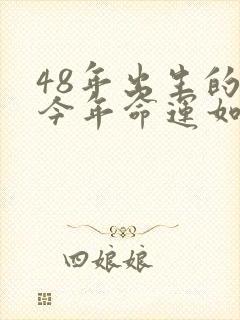 48年出生的
今年命運如
四娘娘